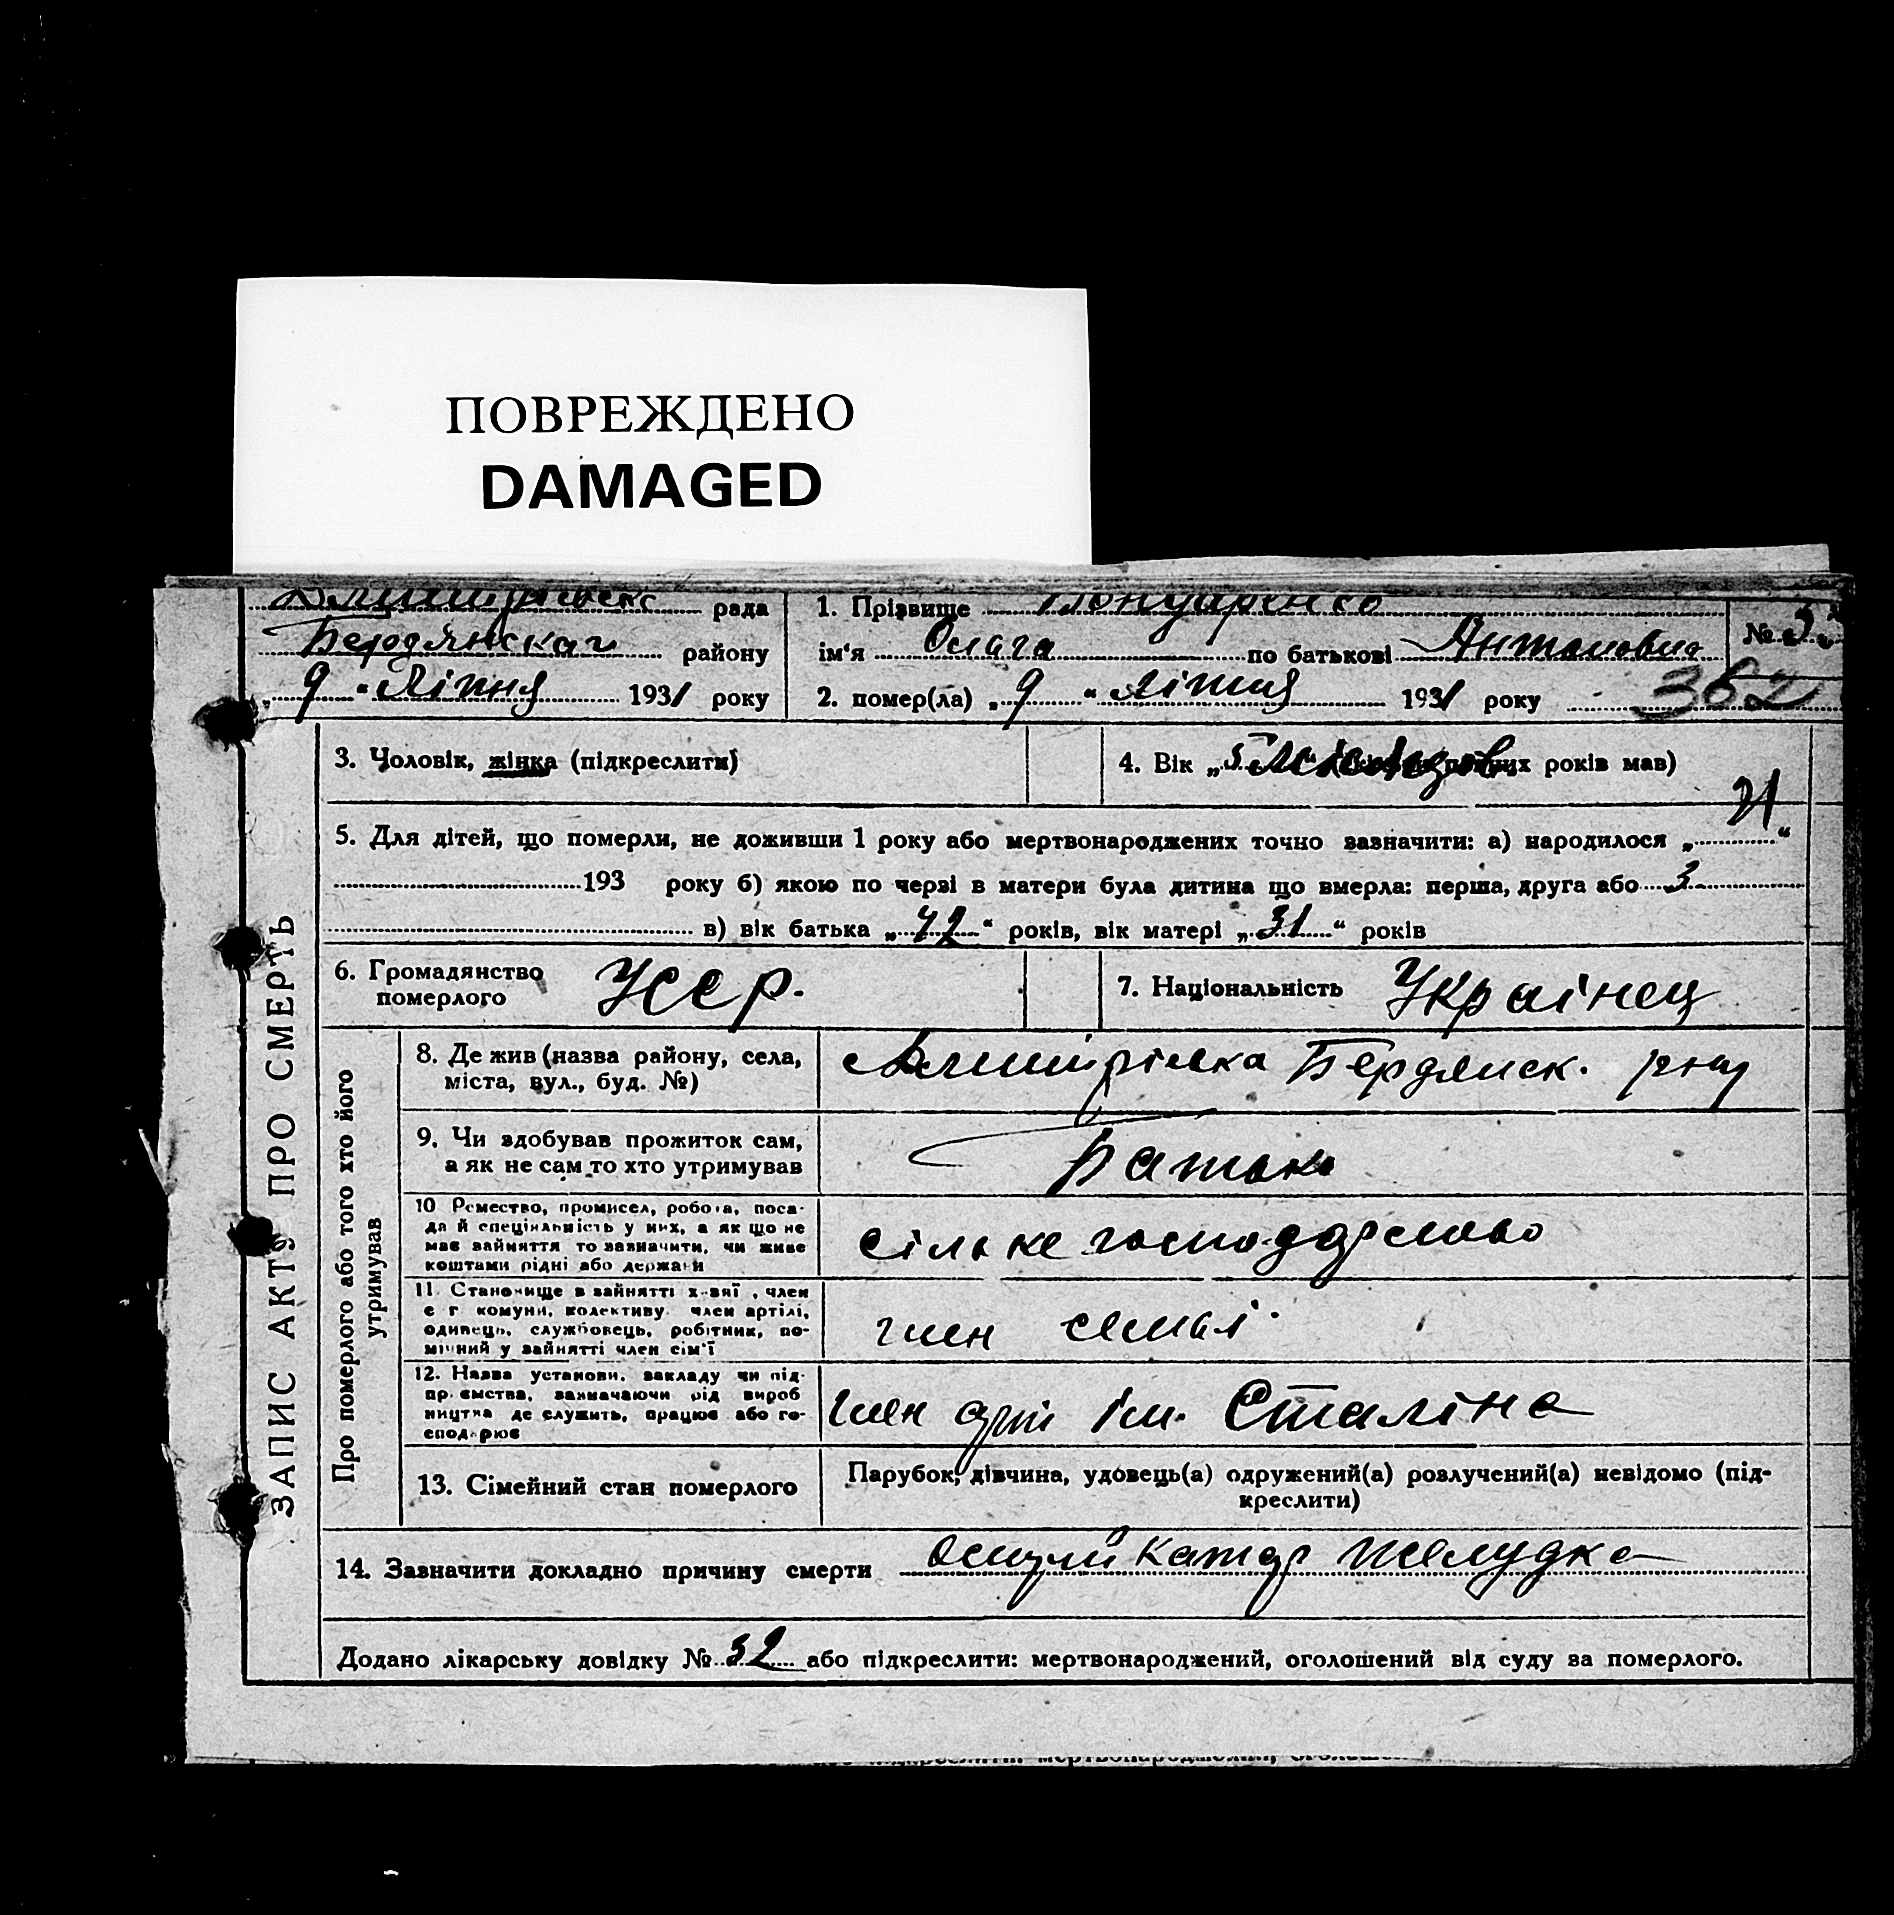 ПОВРЕЖДЕНО
DAMAGED
рада
Бердянская району
"9" Ліпня 1931 року
1. Прізвище Гончаренко
ім'я Ольга по батькові Антоновна
2. помер(ла) „9" Ліпня 1931 року
№
362
ЗАПИС АКТУ ПРО СМЕРТЬ
3. Чоловік, жінка (підкреслити)
4. Вік „5 місяців років мав)
5. Для дітей, що померли, не доживши 1 року або мертвонароджених точно зазначити: а) народилося „ "
193 року б) якою по черві в матери була дитина що вмерла: перша, друга або 3
в) вік батька „42" років, вік матері „31" років
6. Громадянство
померлого
Усср.
7. Національність Українец
Про померлого або того хто його
утримував
8. Де жив (назва району, села,
міста, вул., буд. №)
Бердянск. р-ну
9. Чи здобував прожиток сам,
а як не сам то хто утримував
Батько
10 Ремество, промисел, робота, поса-
да й спеціяльність у них, а як що не
має зайняття то зазначити, чи живе
коштами рідні або держави
сільке господарство
11. Становище в зайнятті х-вні , член
с г комуни, колективу, член артілі,
одинець, службовець, робітник, по-
мічний у зайнятті член сім'ї
член семьі
12. Назва установи, закладу чи під-
пр.ємства, зазначаючи рід вироб
ництва де служить, працює або го-
сподарює
член арт ім. Сталіна
13. Сімейний стан померлого
Парубок, дівчина, удовець(а) одружений(а) розлучений(а) невідомо (під-
креслити)
14. Зазначити докладно причину смерти Острий катар желудка
Додано лікарську довідку № 32 або підкреслити: мертвонароджений, оголошений від суду за померлого.